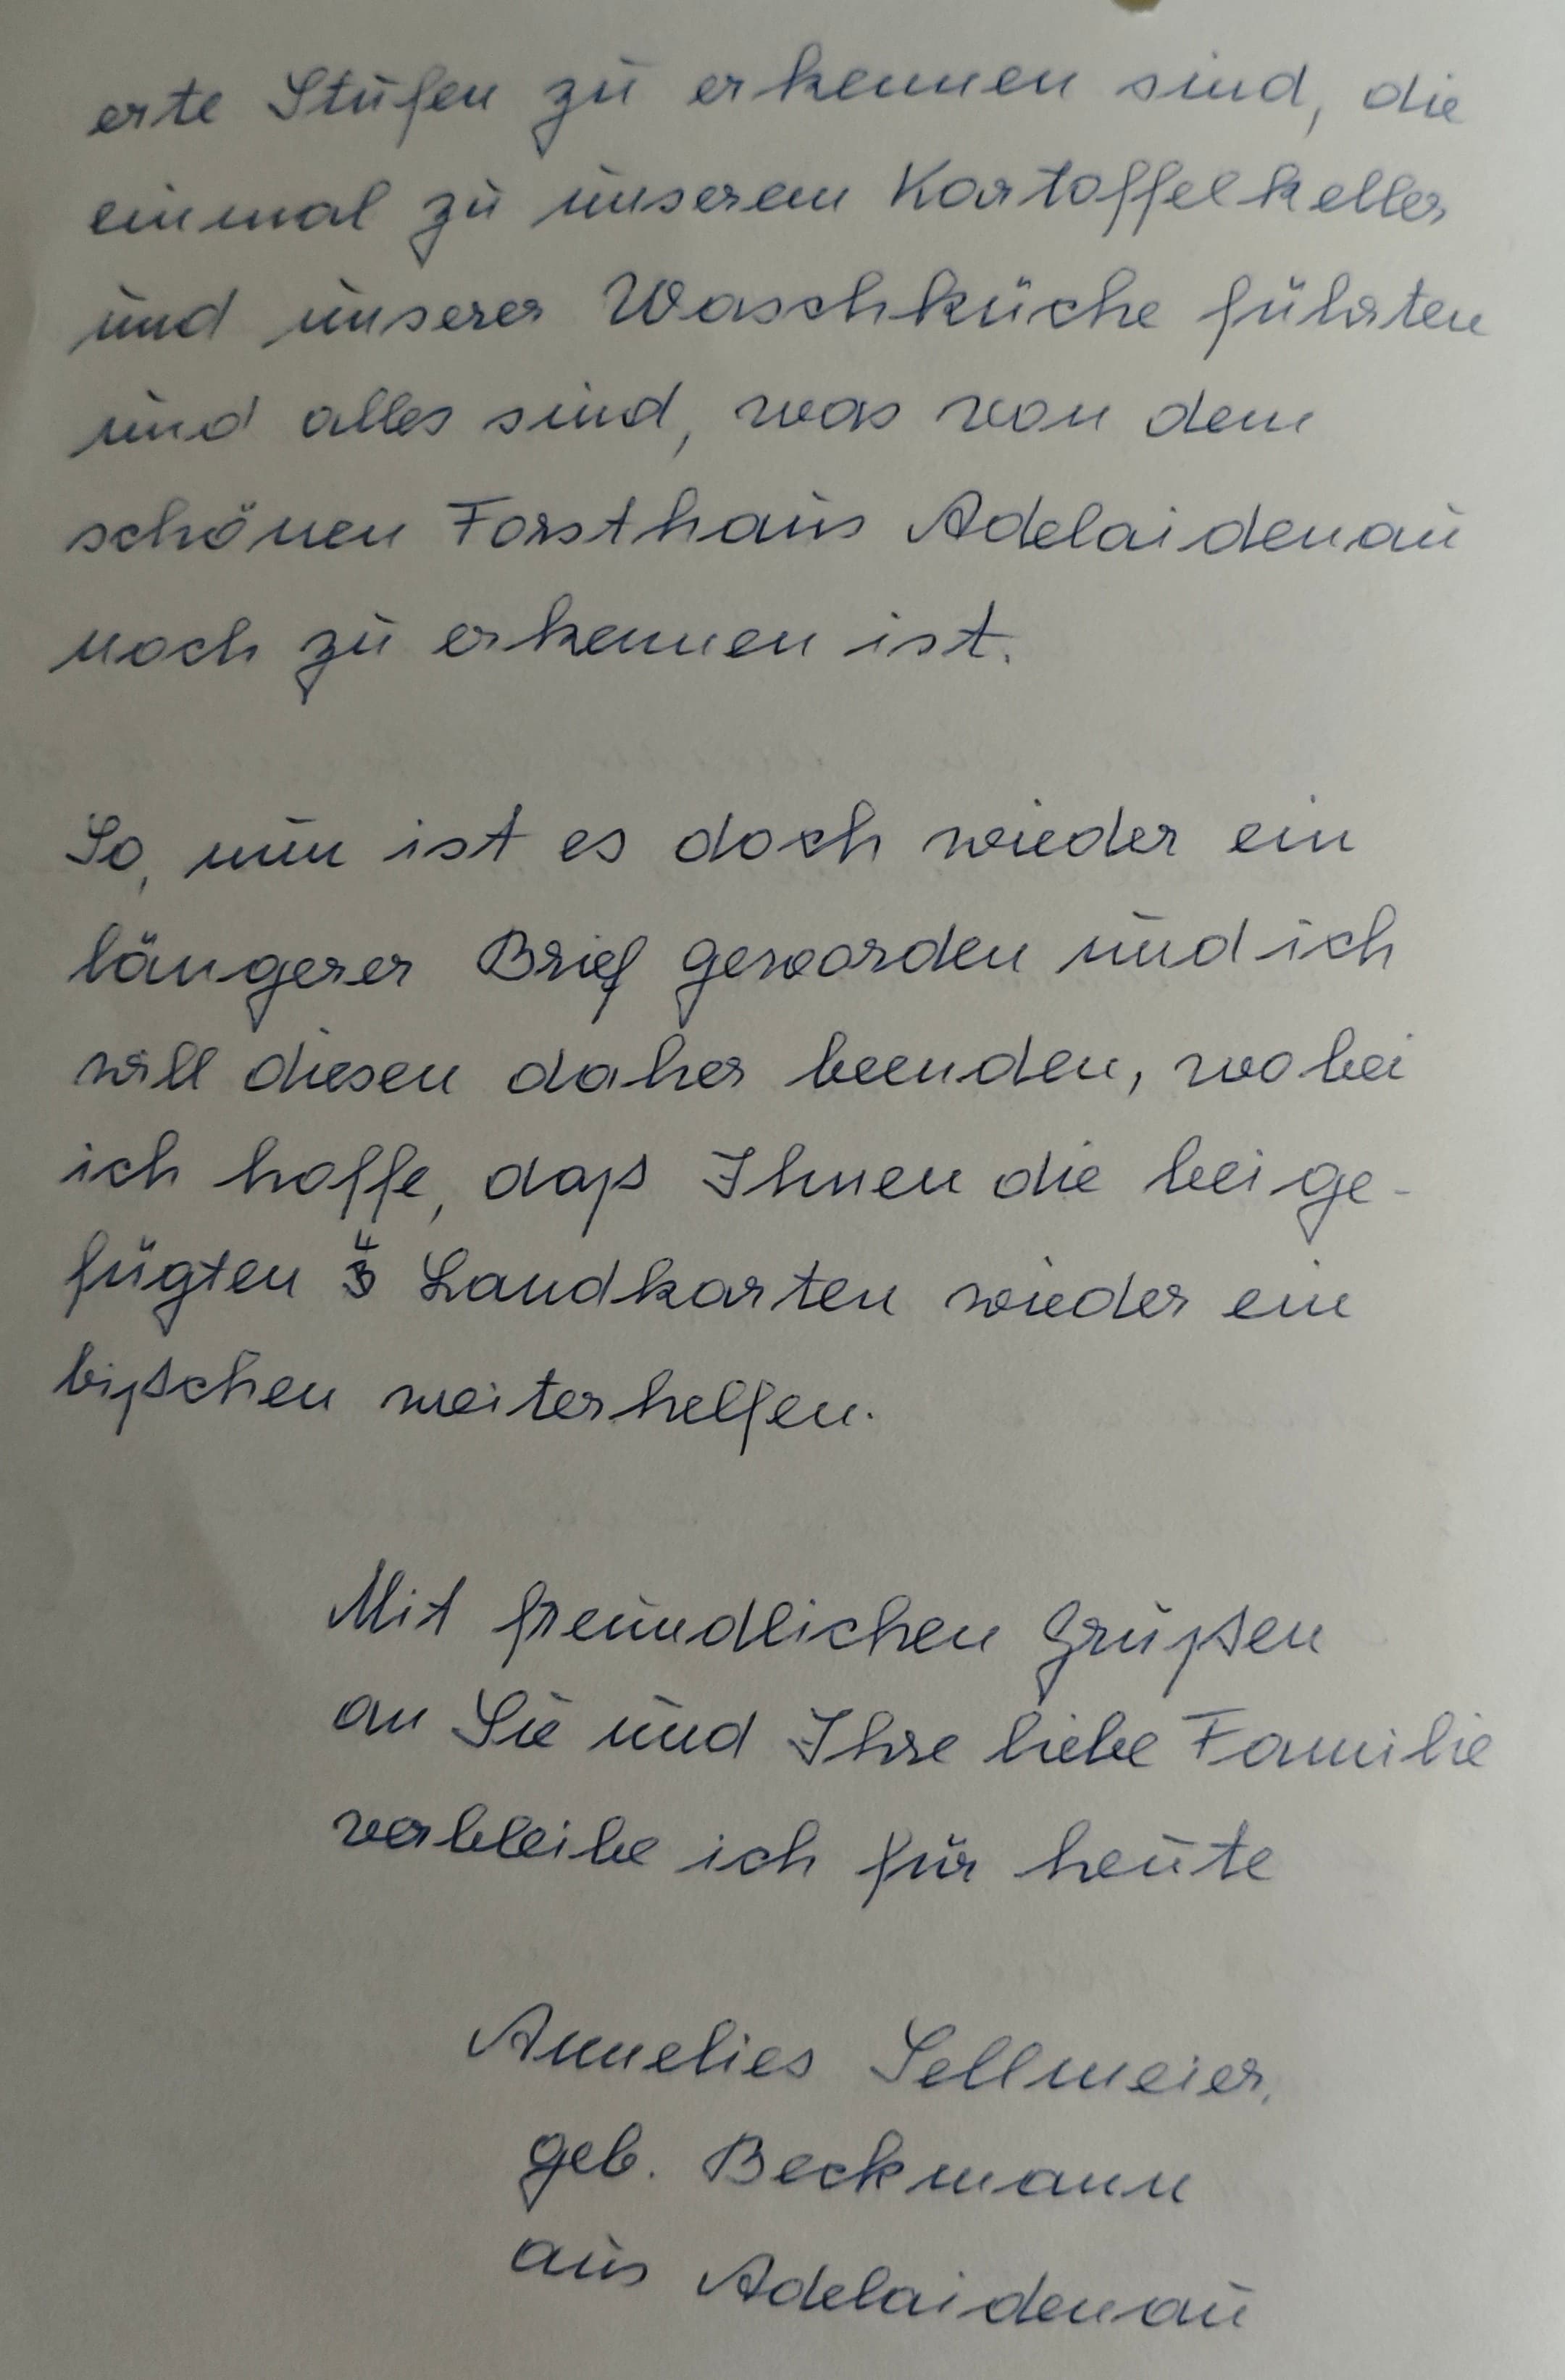 erte Stufen zu erkennen sind, die
einmal zu unserem Kartoffelkeller
und unserer Waschküche führten
und alles sind, was von dem
schönen Forsthaus Adelaidenau
noch zu erkennen ist.
So, nun ist es doch wieder ein
längerer Brief geworden und ich
will diesen daher beenden, wobei
ich hoffe, daß Ihnen die beige-
fügten 4 Landkarten wieder ein
bißchen weiterhelfen.
Mit freundlichen Grüßen
an Sie und Ihre liebe Familie
verbleibe ich für heute
Annelies Sellmeier,
geb. Beckmann
aus Adelaidenau